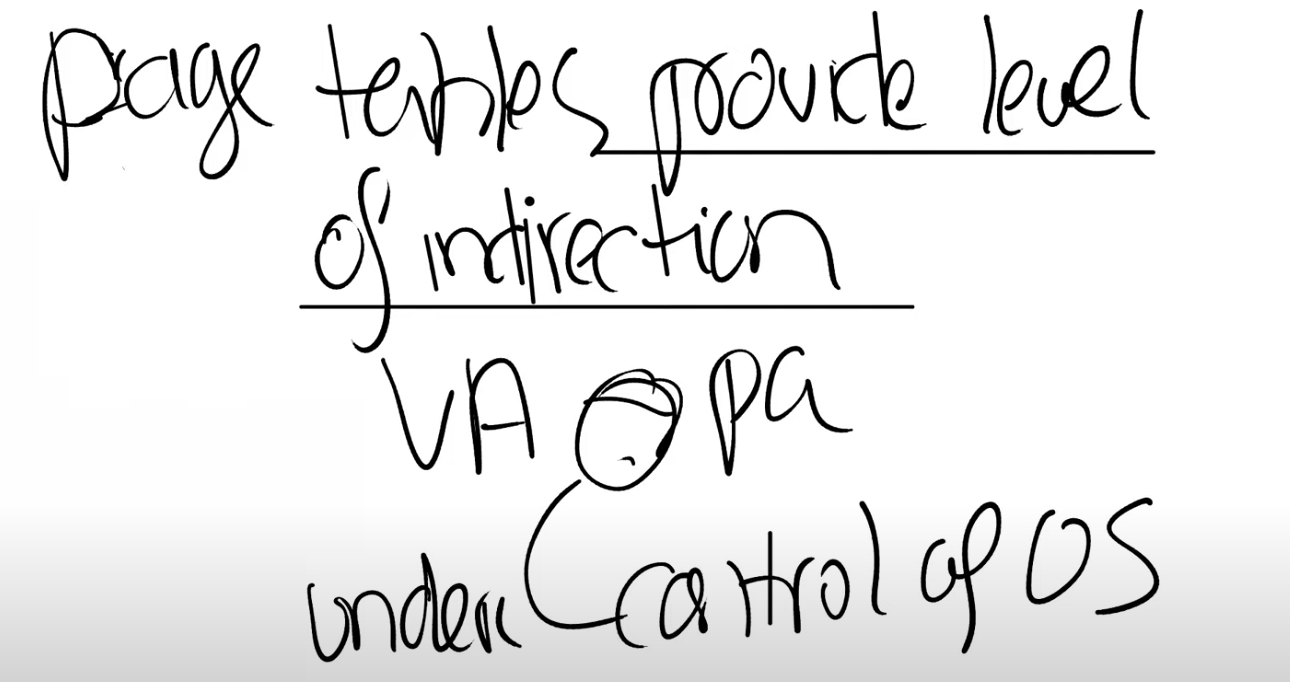 page tables provide level
of indirection
VA pa
under control of OS